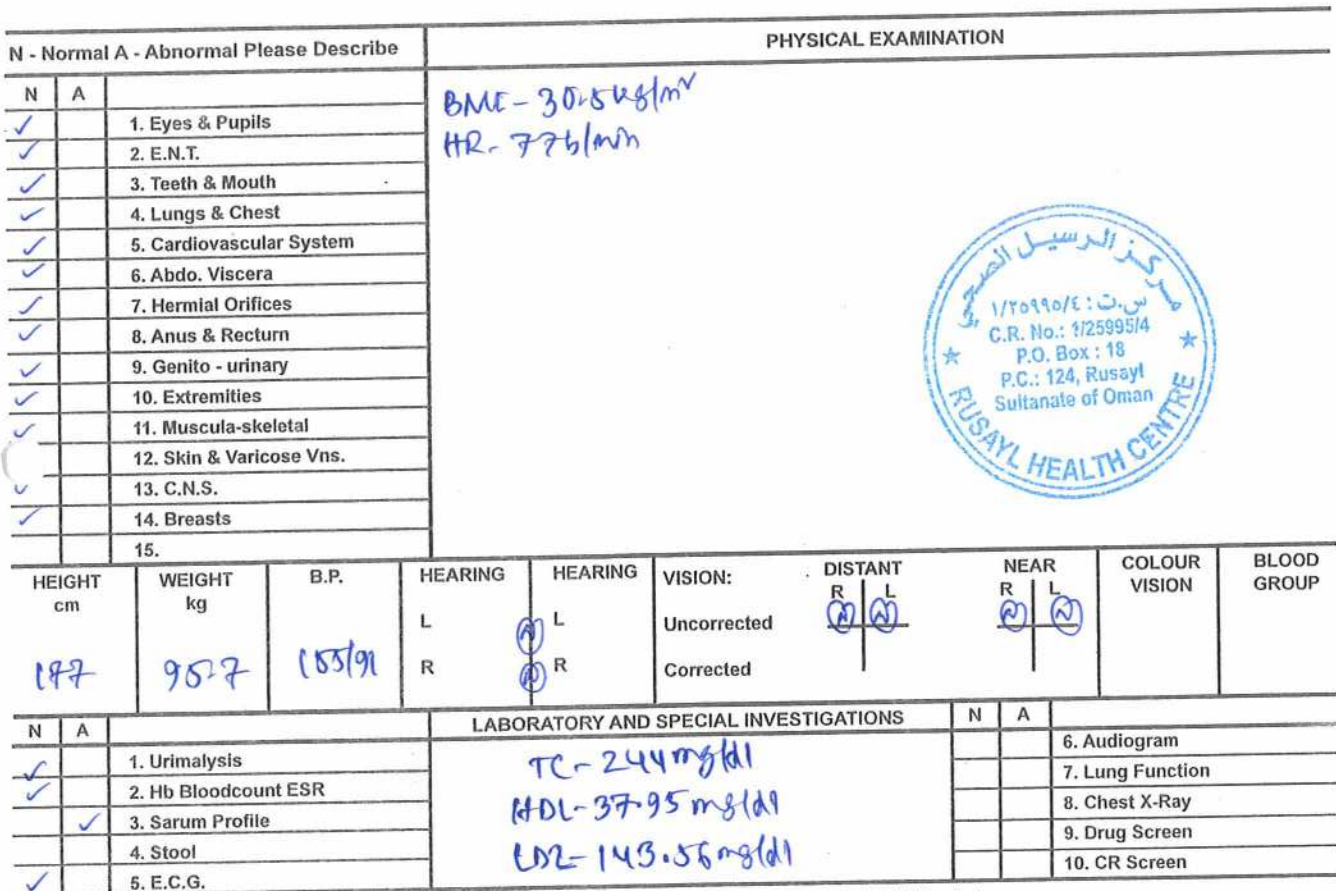 N - Normal A - Abnormal Please Describe
PHYSICAL EXAMINATION
N A
✓ 1. Eyes & Pupils
✓ 2. E.N.T.
✓ 3. Teeth & Mouth
✓ 4. Lungs & Chest
✓ 5. Cardiovascular System
✓ 6. Abdo. Viscera
✓ 7. Hermial Orifices
✓ 8. Anus & Recturn
✓ 9. Genito - urinary
✓ 10. Extremities
✓ 11. Muscula-skeletal
12. Skin & Varicose Vns.
✓ 13. C.N.S.
✓ 14. Breasts
15.
BMI - 30.5 kg/m²
HR - 77b/min
مركز الرسيل الصحي
س.ت : ١/٢٥٩٩٥/٤
C.R. No.: 1/25995/4
P.O. Box : 18
P.C.: 124, Rusayl
Sultanate of Oman
RUSAYL HEALTH CENTRE
HEIGHT WEIGHT B.P. HEARING HEARING VISION: DISTANT NEAR COLOUR BLOOD
cm kg R L R L VISION GROUP
L N L Uncorrected N N N N
177 95.7 155/91 R N R Corrected
N A LABORATORY AND SPECIAL INVESTIGATIONS N A
✓ 1. Urimalysis
✓ 2. Hb Bloodcount ESR
✓ 3. Sarum Profile
4. Stool
✓ 5. E.C.G.
TC - 244 mg/dl
HDL - 37.95 mg/dl
LDL - 143.56 mg/dl
6. Audiogram
7. Lung Function
8. Chest X-Ray
9. Drug Screen
10. CR Screen